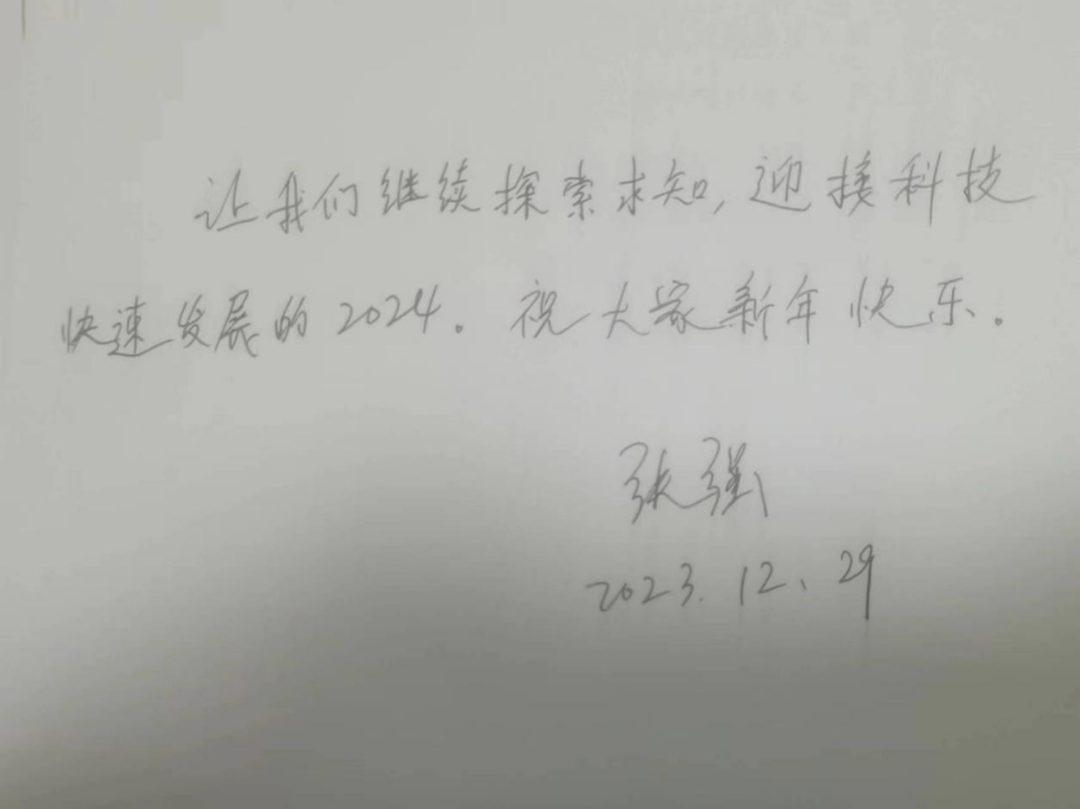 让我们继续探索求知,迎接科技
快速发展的2024。祝大家新年快乐。
张强
2023.12、29